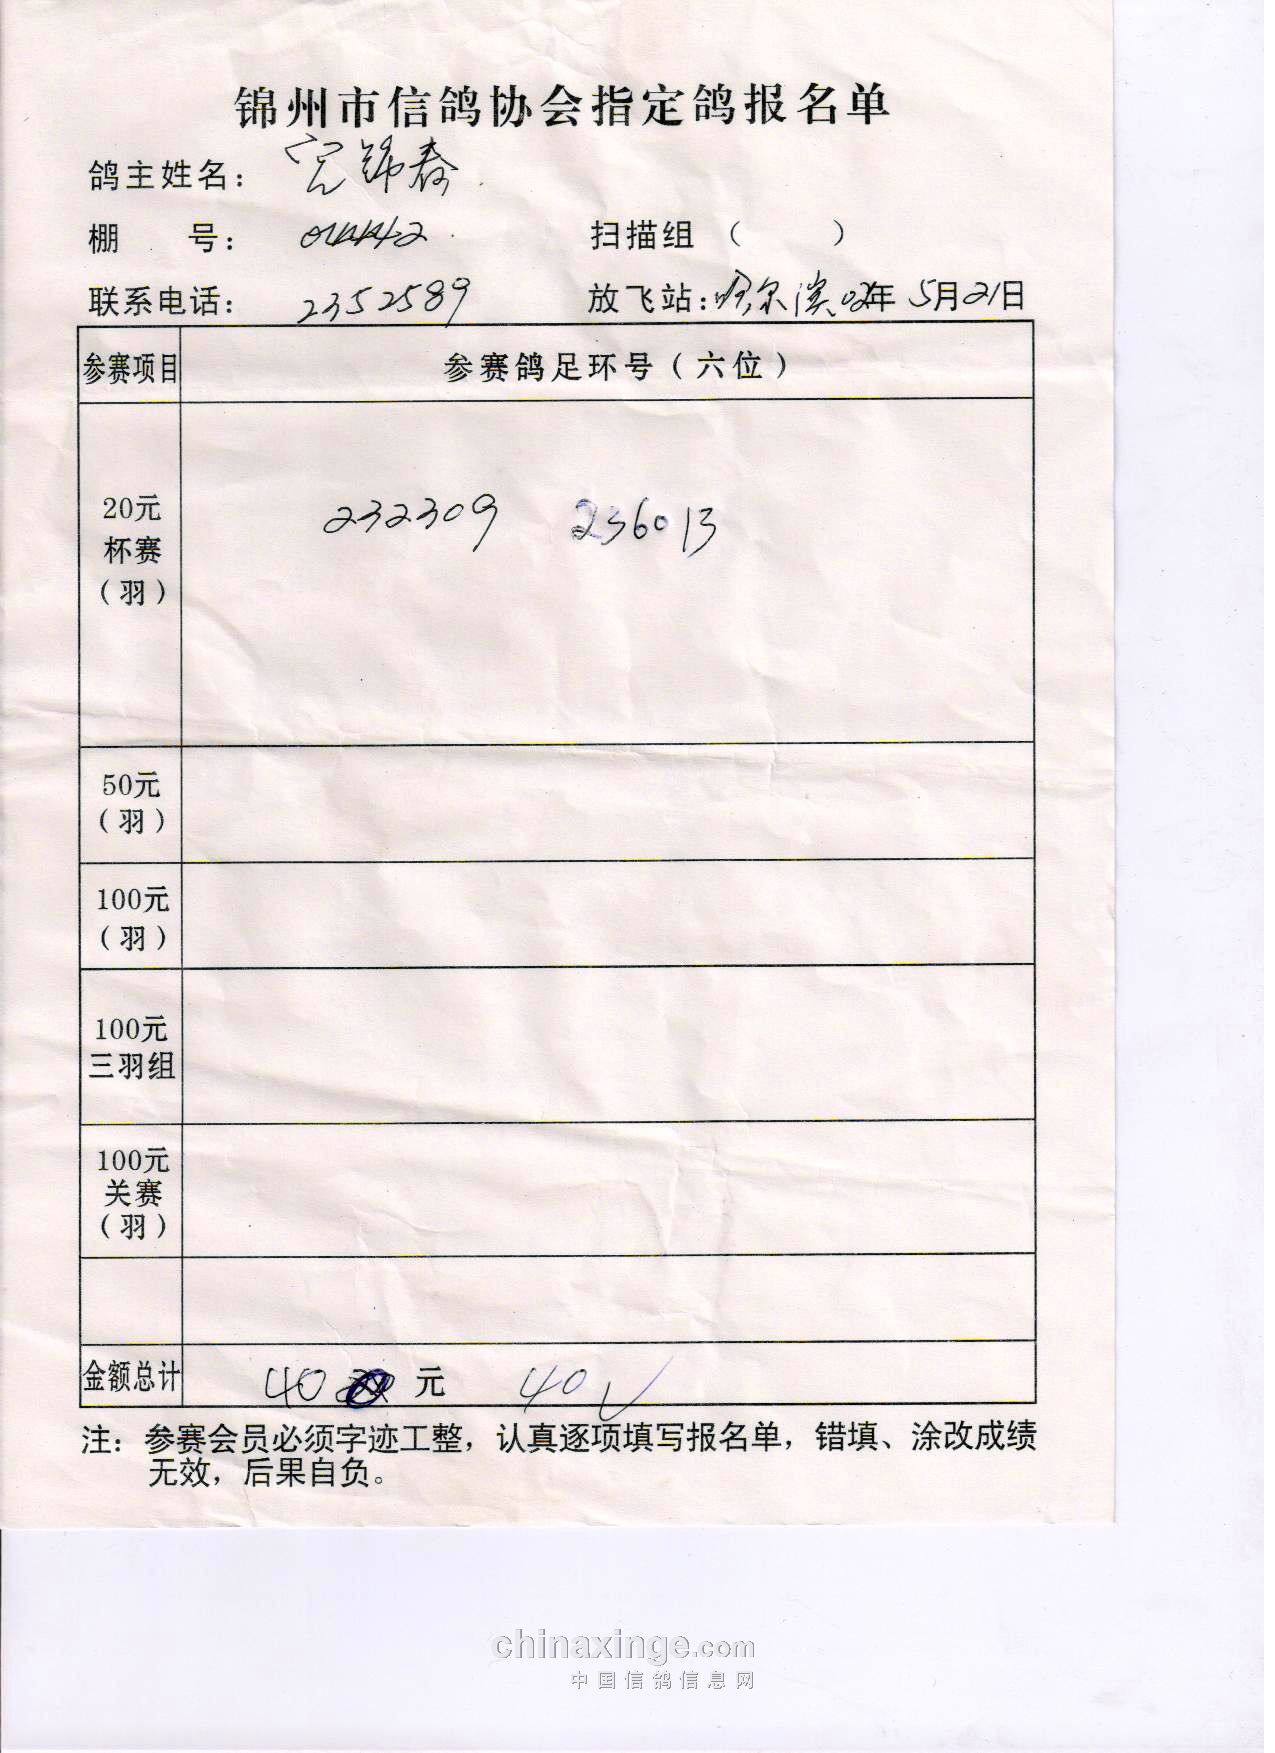 锦州市信鸽协会指定鸽报名单
鸽主姓名： 锦春
棚 号：
扫描组（ ）
联系电话：2352589
放飞站：哈尔滨 02年 5月21日
参赛项目 参赛鸽足环号（六位）
20元
杯赛
（羽）
232309 236013
50元
（羽）
100元
（羽）
100元
三羽组
100元
关赛
（羽）
金额总计 40 元 40
注：参赛会员必须字迹工整，认真逐项填写报名单，错填、涂改成绩
无效，后果自负。
chinaxinge.com
中国信鸽信息网